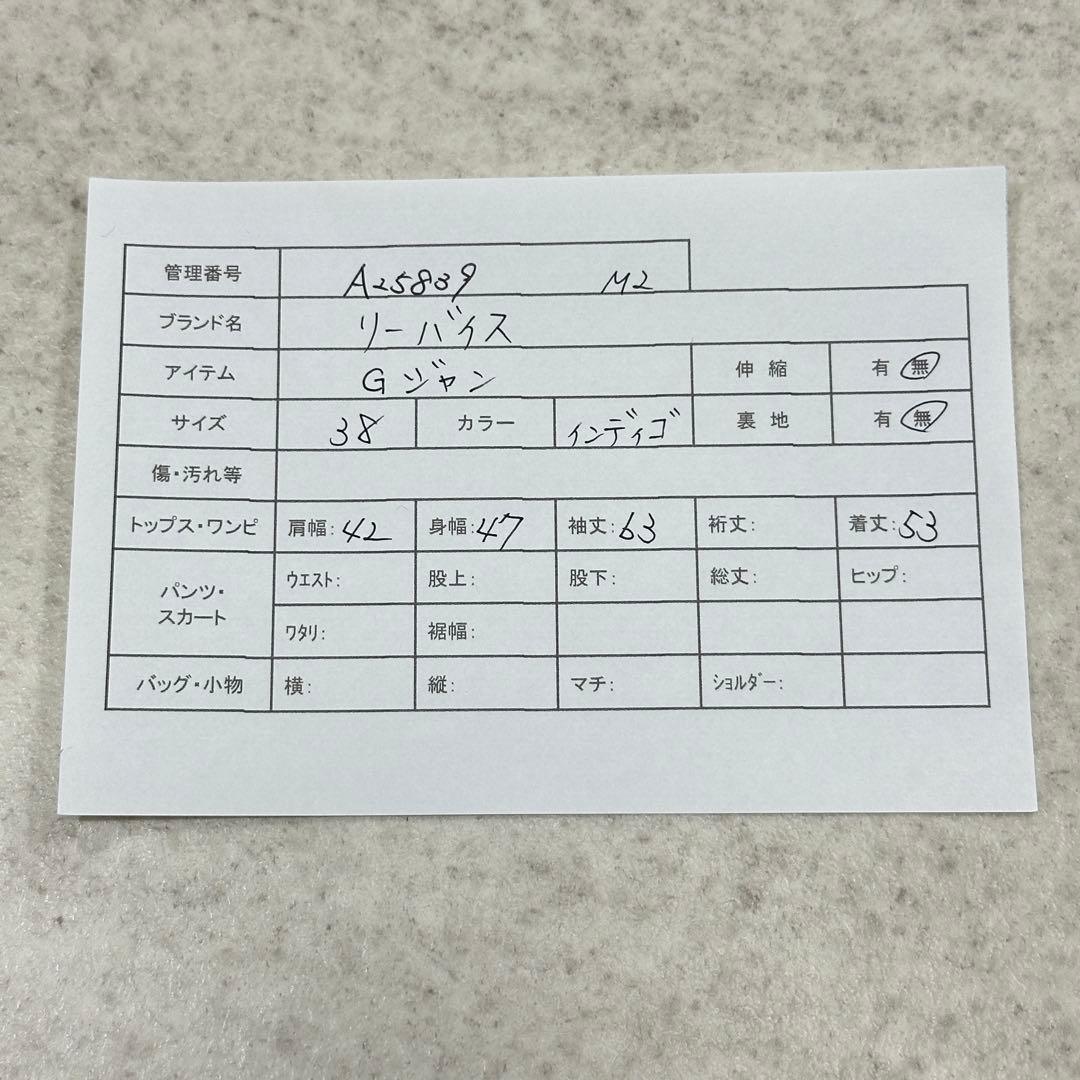 管理番号 A25839 M2
ブランド名 リーバイス
アイテム Gジャン 伸縮 有 無
サイズ 38 カラー インディゴ 裏地 有 無
傷・汚れ等
トップス・ワンピ 肩幅:42 身幅:47 袖丈:63 裄丈: 着丈:53
パンツ・スカート ウエスト: 股上: 股下: 総丈: ヒップ:
ワタリ: 裾幅:
バッグ・小物 横: 縦: マチ: ショルダー: